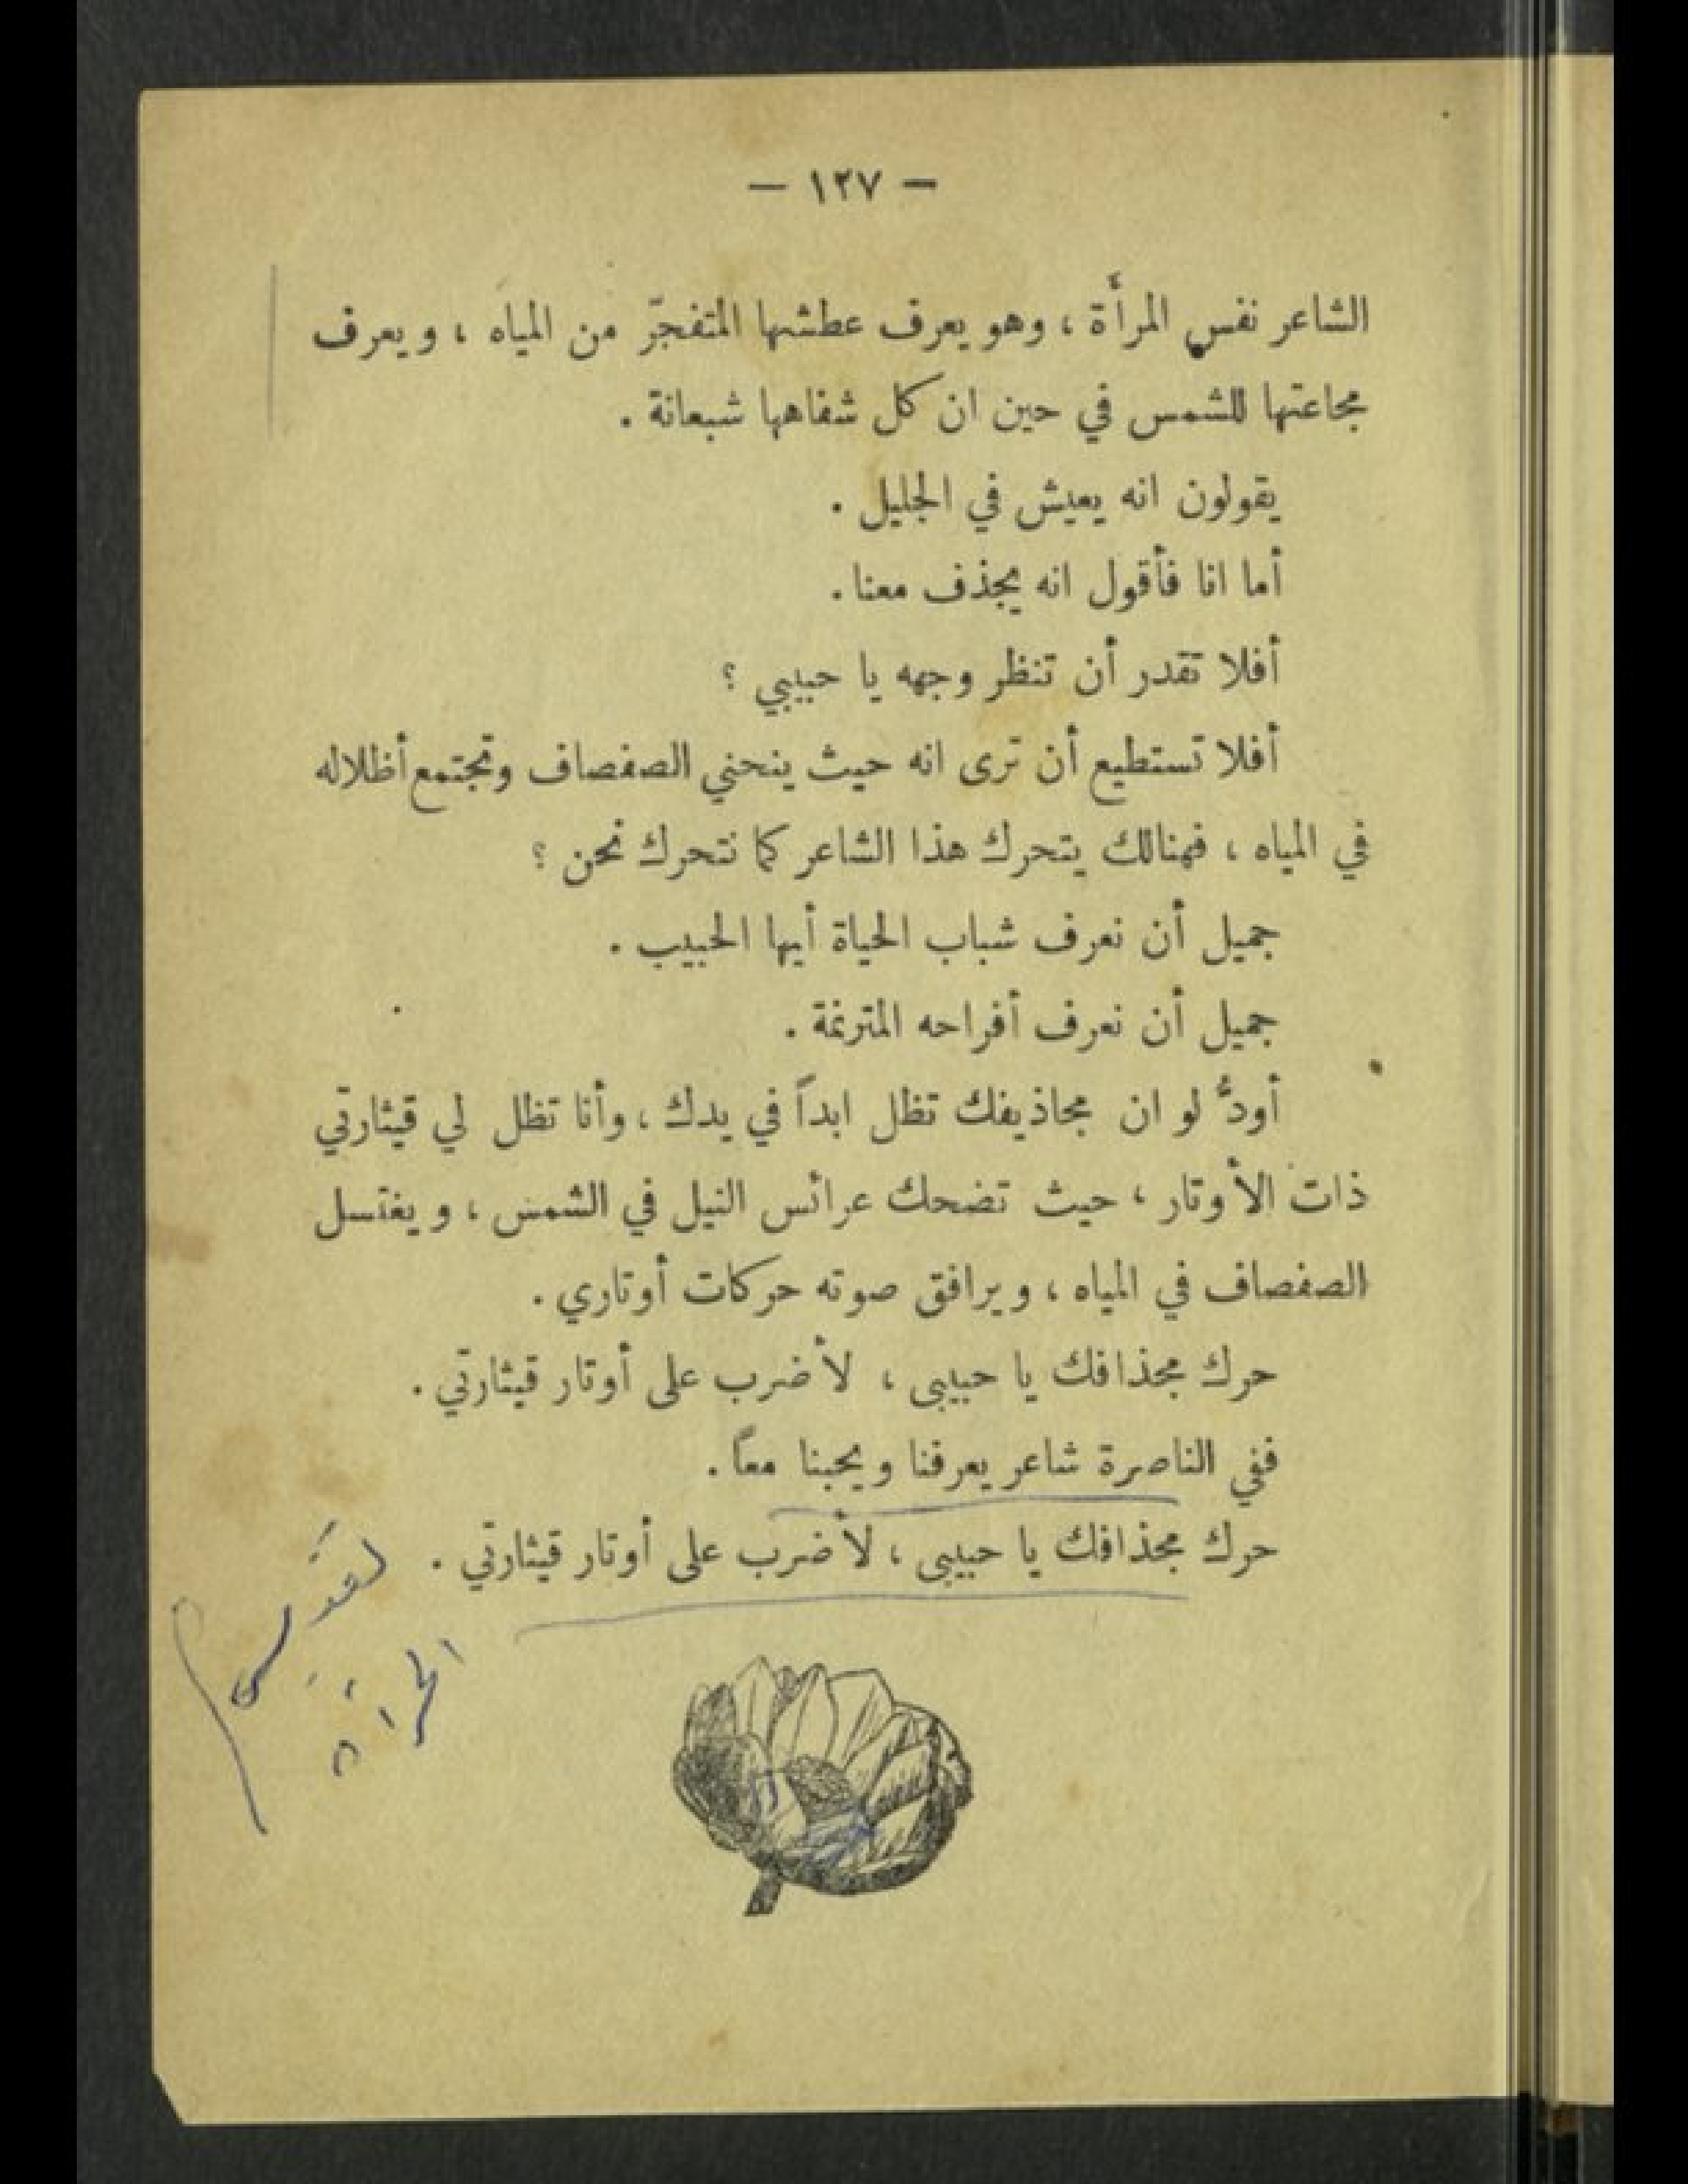 — ١٢٧ —
الشاعر نفس المرأة ، وهو يعرف عطشها المتفجّر من المياه ، ويعرف
مجاعتها للشمس في حين ان كل شفاهها شبعانة .
يقولون انه يعيش في الجليل .
أما انا فأقول انه يجذف معنا .
أفلا تقدر أن تنظر وجهه يا حبيبي ؟
أفلا تستطيع أن ترى انه حيث ينحني الصفصاف وتجتمع أظلاله
في المياه ، فهنالك يتحرك هذا الشاعر كما نتحرك نحن ؟
جميل أن نعرف شباب الحياة أيها الحبيب .
جميل أن نعرف أفراحه المترنمة .
أودُّ لو ان مجاذيفك تظل ابداً في يدك ، وأنا تظل لي قيثارتي
ذات الأوتار ، حيث تضحك عرائس النيل في الشمس ، ويغتسل
الصفصاف في المياه ، ويرافق صوته حركات أوتاري .
حرك مجذافك يا حبيبى ، لأضرب على أوتار قيثارتي .
ففي الناصرة شاعر يعرفنا ويحبنا معاً .
حرك مجذافك يا حبيبى ، لأضرب على أوتار قيثارتي .